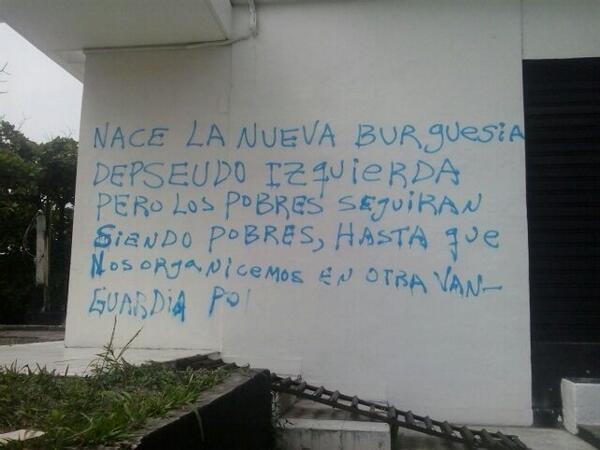 NACE LA NUEVA BURguESIA
DEPSEUDO IZquiERDA
PERO LOS POBRES SEguiRAN
SIENDO POBRES, HASTA que
NOSORgANICEMOS EN OTRA VAN-
GUARDIA